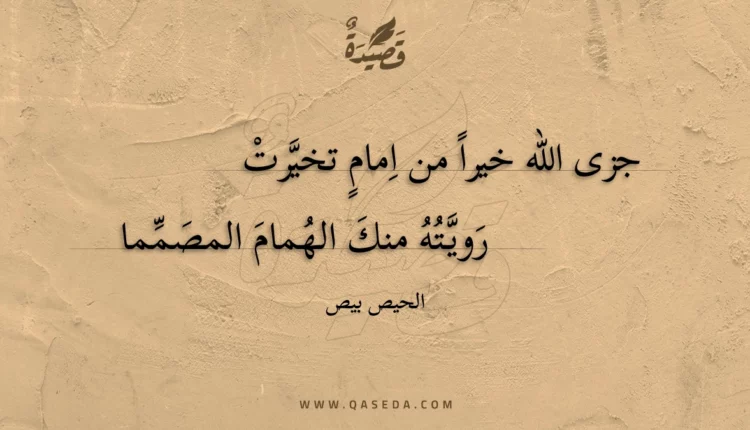 قَصِيْدَةٌ
جزى الله خيراً من اِمامٍ تخيَّرتْ
رَويَّتُهُ منكَ الهُمامَ المصَمِّما
الحيص بيص
WWW.QASEDA.COM